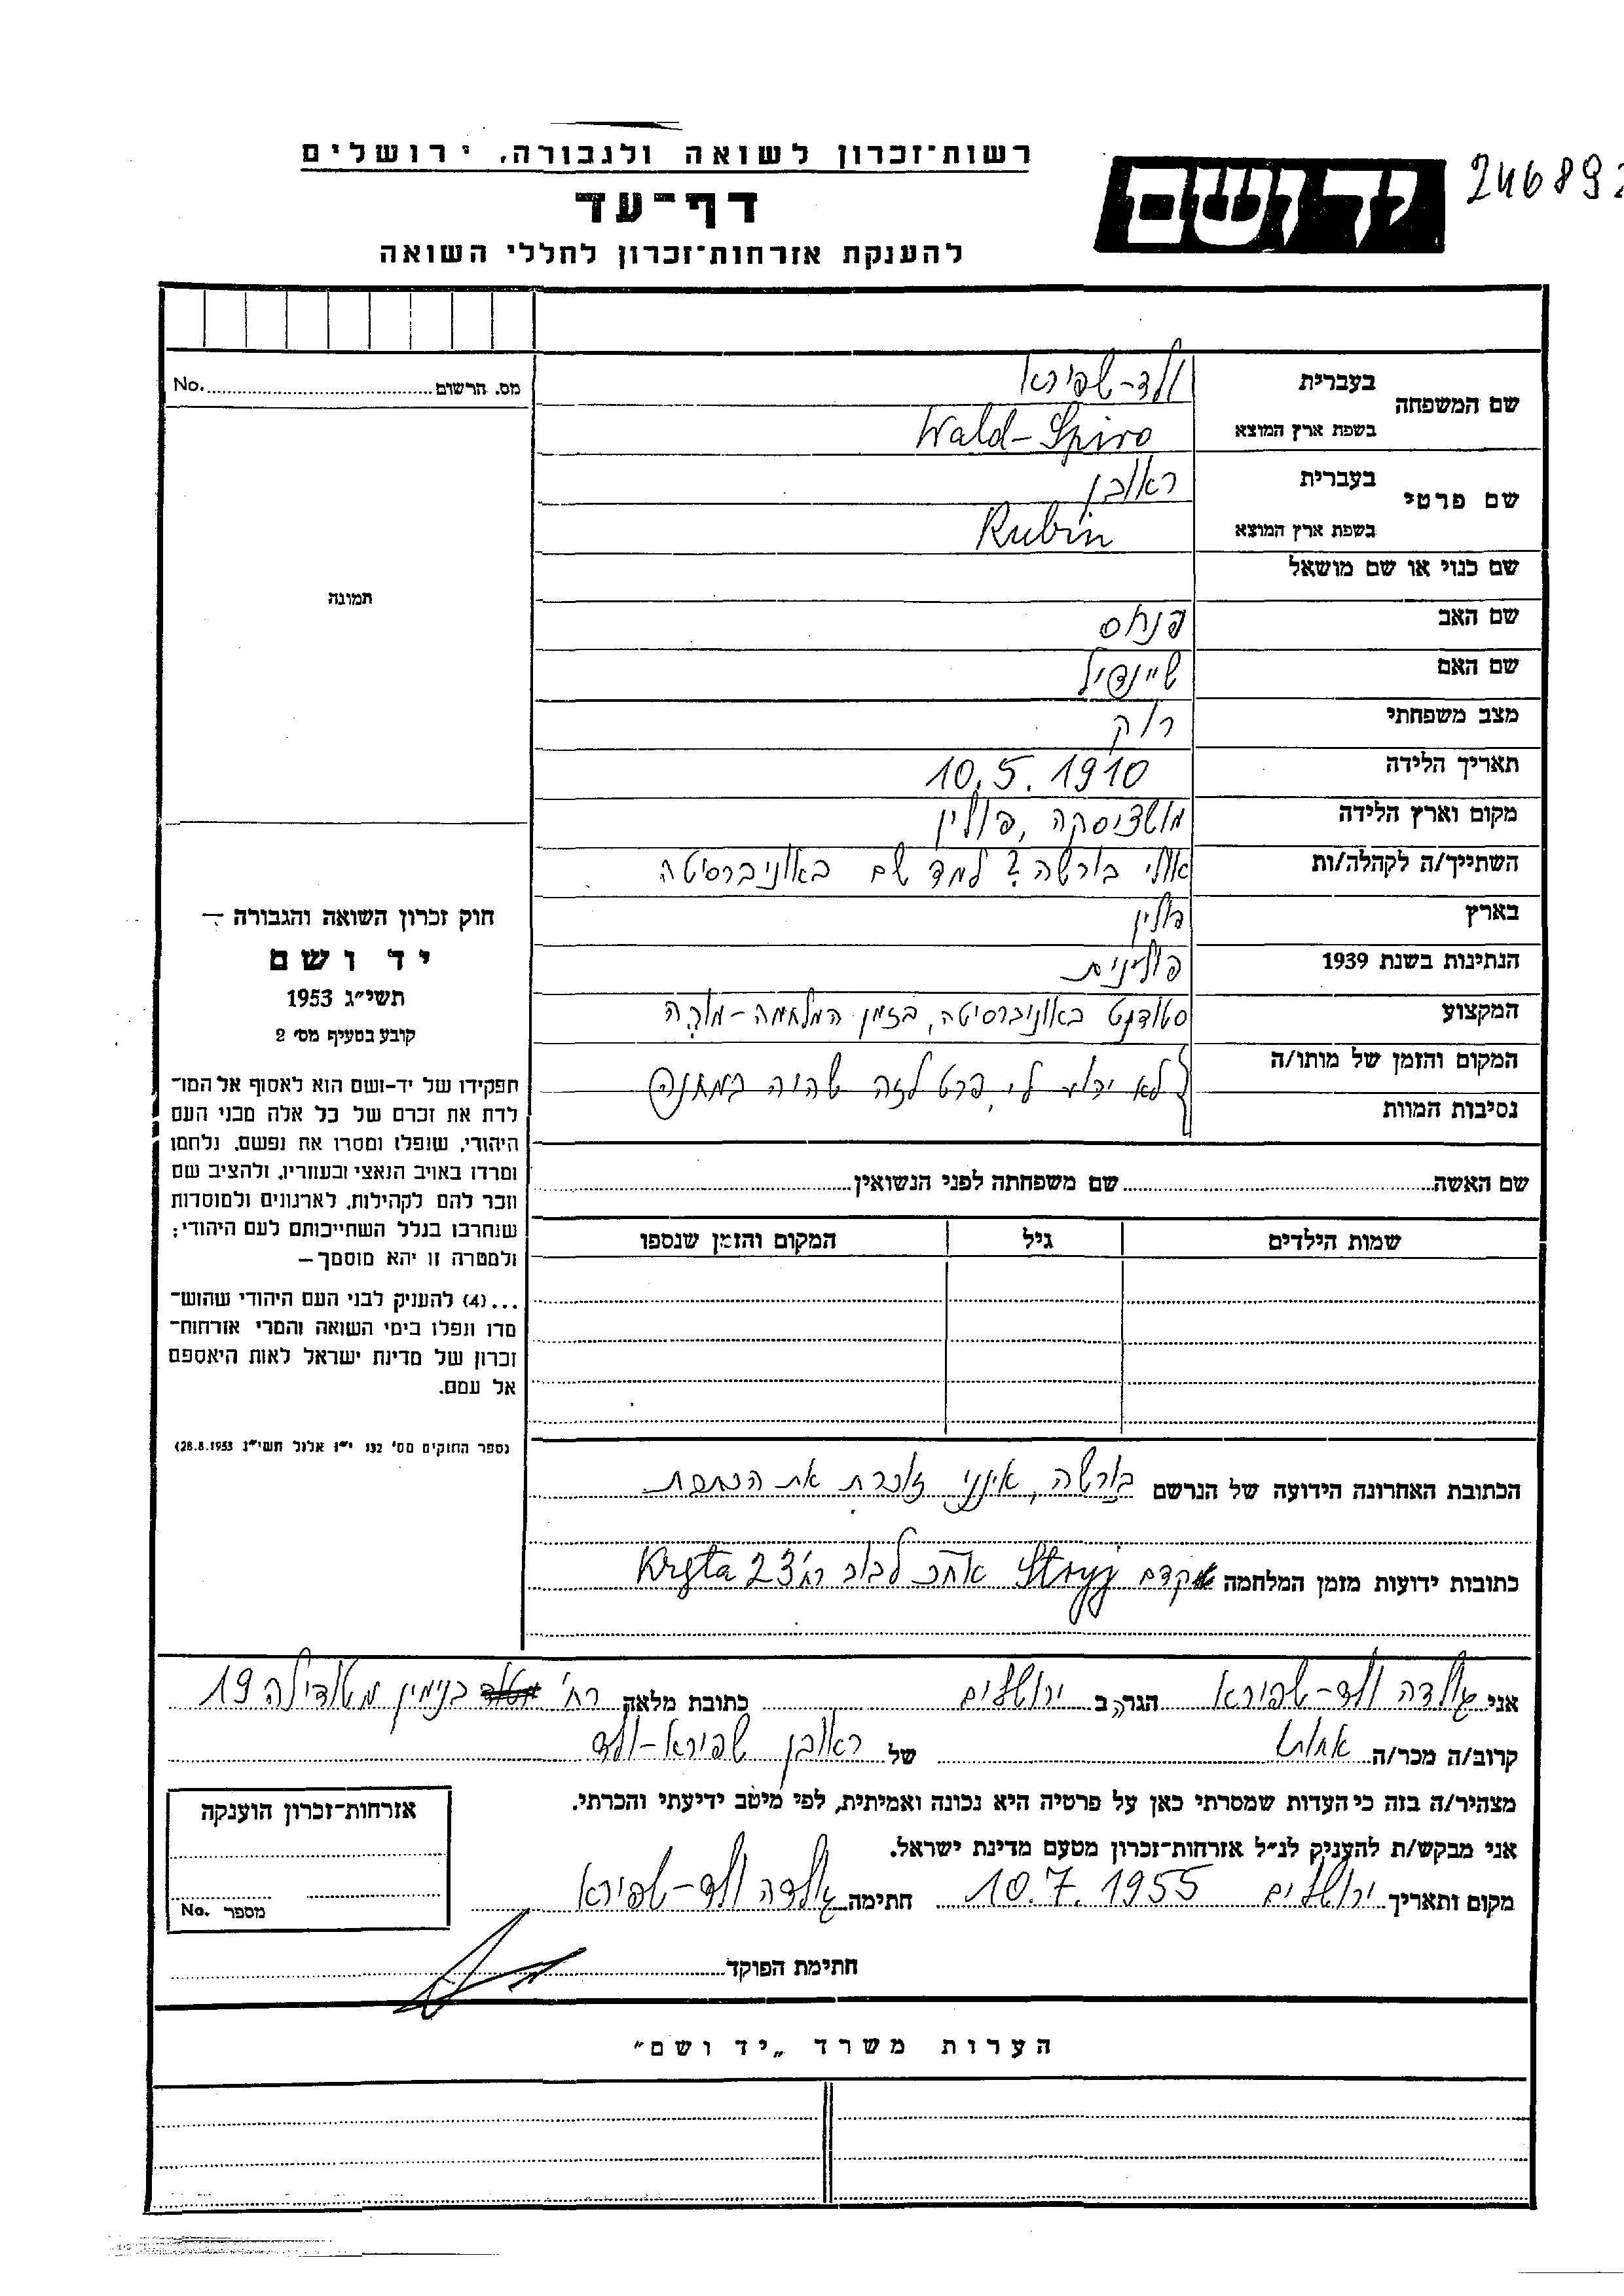 רשות־זכרון לשואה ולגבורה, ירושלים
דף־עד
להענקת אזרחות־זכרון לחללי השואה
יד ושם
24689
מס. הרשום No.
תמונה
שם המשפחה בעברית ולד-שפירא
בשפת ארץ המוצא Wald-Spiro
שם פרטי בעברית ראובן
בשפת ארץ המוצא Rubin
שם כנוי או שם מושאל
שם האב פנחס
שם האם שיינדיל
מצב משפחתי רוק
תאריך הלידה 10.5.1910
מקום וארץ הלידה מושציסקה, פולין
השתייך/ה לקהלה/ות אולי בורשה? למד שם באוניברסיטה
בארץ פולין
הנתינות בשנת 1939 פולינית
המקצוע סטודנט באוניברסיטה, בזמן המלחמה - מורה
המקום והזמן של מותו/ה
לא ידוע לי, פרט לזה שהיה במחנה
נסיבות המוות
שם האשה שם משפחתה לפני הנשואין
שמות הילדים גיל המקום והזמן שנספו
חוק זכרון השואה והגבורה —
יד ושם
תשי"ג 1953
קובע בסעיף מס׳ 2
תפקידו של יד־ושם הוא לאסוף אל המו־
לדת את זכרם של כל אלה מבני העם
היהודי, שנפלו ומסרו את נפשם, נלחמו
ומרדו באויב הנאצי ובעוזריו, ולהציב שם
וזכר להם לקהילות, לארגונים ולמוסדות
שנחרבו בגלל השתייכותם לעם היהודי;
ולמטרה זו יהא מוסמך —
...(4) להעניק לבני העם היהודי שהוש־
מדו ונפלו בימי השואה והמרי אזרחות־
זכרון של מדינת ישראל לאות היאספם
אל עמם.
(ספר החוקים מס׳ 132 י"ז אלול תשי"ג 28.8.1953)
הכתובת האחרונה הידועה של הנרשם בורשה, אינני זוכרת את הכתבת
כתובות ידועות מזמן המלחמה קדם Stryj אחר לבוב רח׳ 23
אני גולדה ולד-שפירא הגר/ה ב ירושלים כתובת מלאה רח׳ בנימין מטודילה 19
קרוב/ה מכר/ה אחות של ראובן שפירא-ולד
מצהיר/ה בזה כי העדות שמסרתי כאן על פרטיה היא נכונה ואמיתית, לפי מיטב ידיעתי והכרתי.
אני מבקש/ת להעניק לנ"ל אזרחות־זכרון מטעם מדינת ישראל.
מקום ותאריך ירושלים 10.7.1955 חתימה גולדה ולד-שפירא
חתימת הפוקד
אזרחות־זכרון הוענקה
מספר No.
הערות משרד „יד ושם"